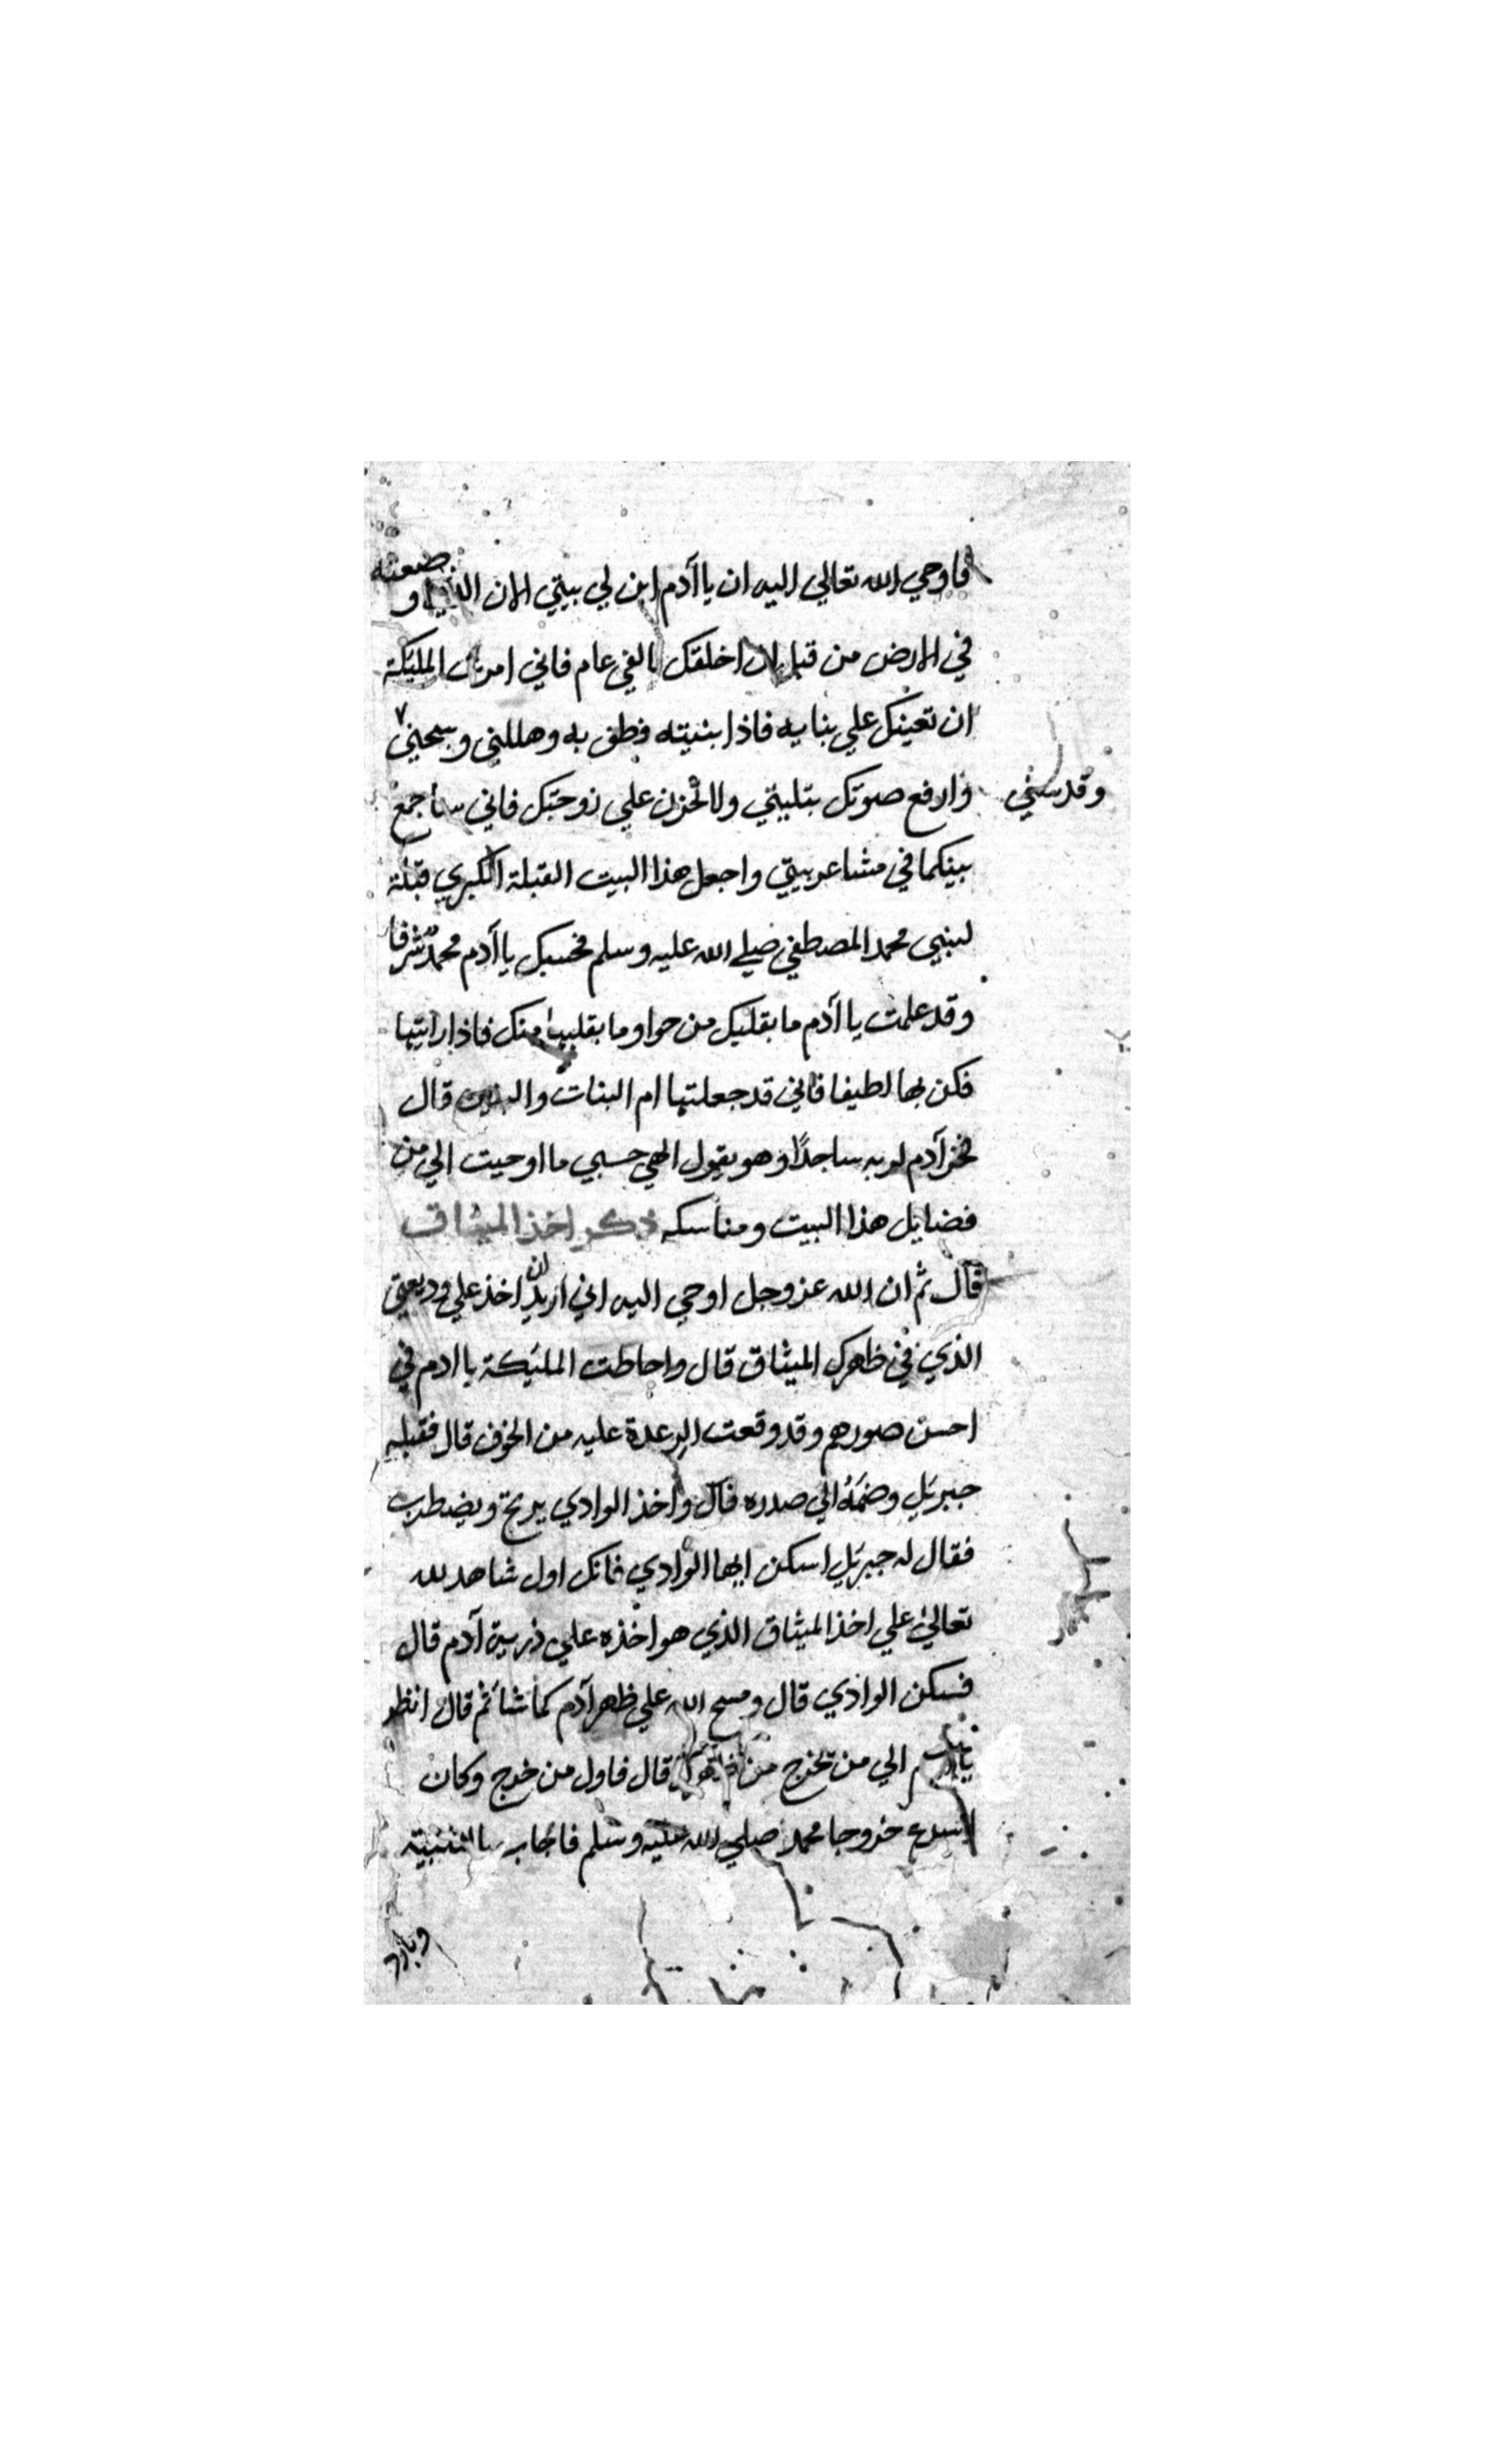 فاوحي الله تعالي اليه ان يا آدم ابن لي بيتي الان الذي وضعته
في الارض من قبل ان اخلقك بالفي عام فاني امرت المليكة
ان تعينك علي بنايه فاذا بنيته فطف به وهللني وسبحني
وقدسني
وارفع صوتك بتلبيتي ولا تحزن علي زوجتك فاني ساجمع
بينكما في مشاعر بيتي واجعل هذا البيت القبلة الكبري قبلة
لنبيي محمد المصطفي صلي الله عليه وسلم فحسبك يا آدم محمد شرفا
وقد علمت يا آدم ما بقلبك من حوا وما بقلبها منك فاذا رايتها
فكن بها لطيفا فاني قد جعلتها ام البنات والبنين قال
فخر آدم لربه ساجدًا وهو يقول الهي حسبي ما اوحيت الي من
فضايل هذا البيت ومناسكه ذكر اخذ الميثاق
قال ثم ان الله عز وجل اوحي اليه اني اريد ان اخذ علي وديعتي
الذي في ظهرك الميثاق قال واحاطت المليكة بادم في
احسن صورهم وقد وقعت الرعدة عليه من الخوف قال فقبله
جبريل وضمه الي صدره قال واخذ الوادي يرتج ويضطرب
فقال له جبريل اسكن ايها الوادي فانك اول شاهد لله
تعالي علي اخذ الميثاق الذي هو اخذه علي ذرية آدم قال
فسكن الوادي قال ومسح الله علي ظهر آدم كما شا ثم قال انظر
يا آدم الي من تخرج من قال فاول من خرج وكان
اسرع خروجا محمد صلي الله عليه وسلم فاجاب بالتلبية
وبادر